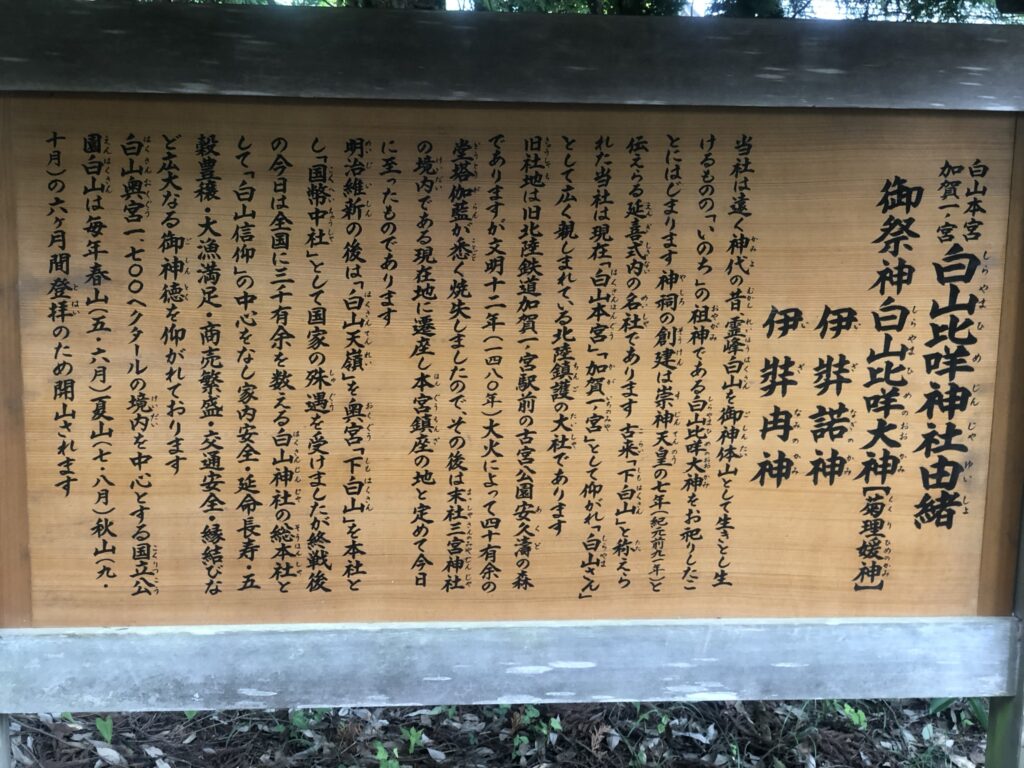 白山本宮
加賀一ノ宮
白山比咩神社由緒
御祭神 白山比咩大神【菊理媛神】
伊弉諾神
伊弉冉神
当社は遠く神代の昔霊峰白山を御神体山として生きとし生
けるものの「いのち」の祖神である白山比咩大神をお祀りしたこ
とにはじまります 神祠の創建は崇神天皇の七年(紀元前九一年)と
伝えらる延喜式内の名社であります 古来「下白山」と称えら
れた当社は現在「白山本宮」「加賀一ノ宮」として仰がれ「白山さん」
として広く親しまれている北陸鎮護の大社であります
旧社地は旧北陸鉄道加賀一宮駅前の古宮公園安久濤の森
でありますが文明十二年(一四八〇年)大火によって四十有余の
堂塔伽藍が悉く焼失しましたので、その後は末社三宮神社
の境内である現在地に遷座し本宮鎮座の地と定めて今日
に至ったものであります
明治維新の後は「白山天嶺」を奥宮「下白山」を本社と
し「国幣中社」として国家の殊遇を受けましたが終戦後
の今日は全国に三千有余を数える白山神社の総本社と
して「白山信仰」の中心をなし家内安全・延命長寿・五
穀豊穣・大漁満足・商売繁盛・交通安全・縁結びな
ど広大なる御神徳を仰がれております
白山奥宮一、七〇〇ヘクタールの境内を中心とする国立公
園白山は毎年春山(五・六月)夏山(七・八月)秋山(九・
十月)の六ヶ月間登拝のため開山されます